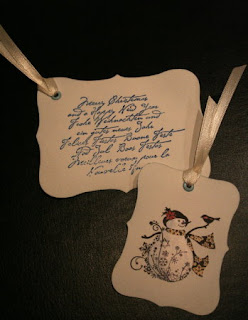 Merry Christmas
and a Happy New Year
Frohe Weihnachten und
ein gutes neues Jahr
Felices Fiestas Buone Feste
God Jul Boas Festas
Meilleurs voeux pour la
Nouvelle